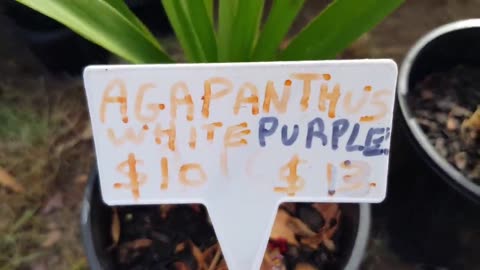 AGAPANTHUS
WHITE PURPLE
$10 $13